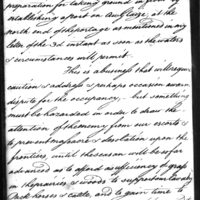 preparation for taking ground in
establishing a post on Auglaize, at the
north end of the portage as mentioned in my
letter of the 3d instant as soon as the waters
& circumstances will permit.
This is a business that will require
caution & address & perhaps occasion some
dispute for the occupancy, but something
must be hazarded in order to draw the
attention of the enemy from our escorts &
to prevent massacre & desolation upon the
frontiers, until the season will be so far
advanced as to afford a sufficiency of grass
in the prairies & woods to support our cavalry
pack horses & cattle, and to gain time to